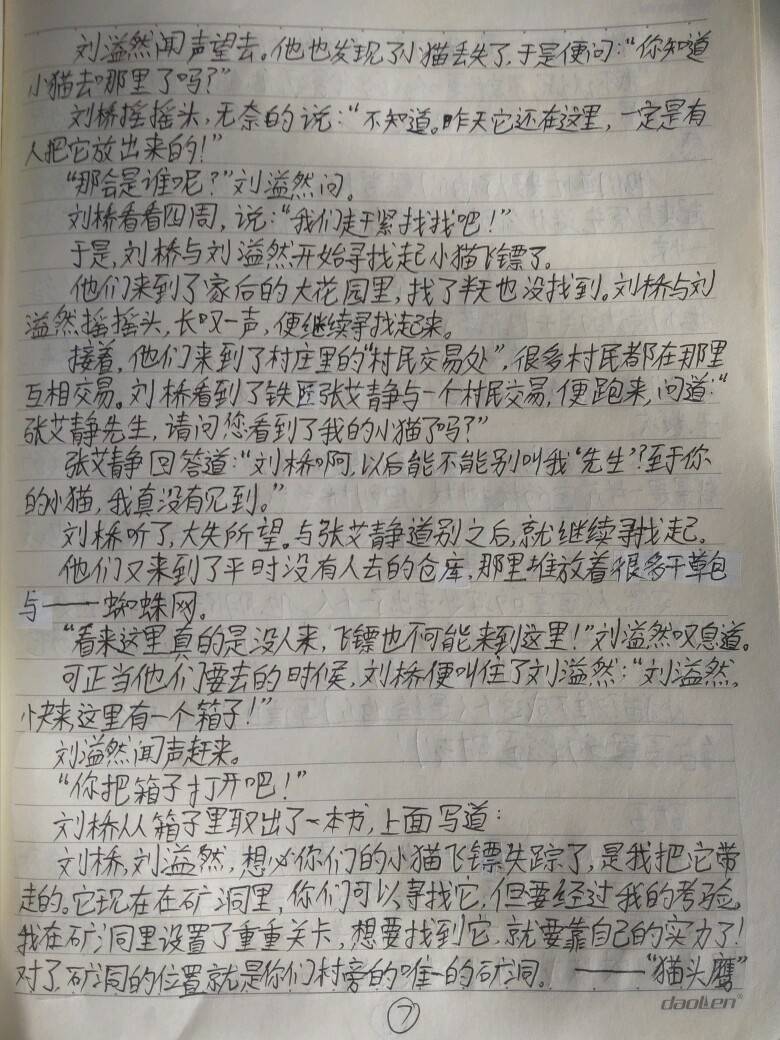 刘溢然闻声望去。他也发现了小猫丢失了,于是便问:“你知道
小猫去哪里了吗?”
刘桥摇摇头,无奈的说:“不知道。昨天它还在这里,一定是有
人把它放出来的!”
“那会是谁呢?”刘溢然问。
刘桥看看四周,说:“我们赶紧找找吧!”
于是,刘桥与刘溢然开始寻找起小猫飞镖了。
他们来到了家后的大花园里,找了半天也没找到。刘桥与刘
溢然摇摇头,长叹一声,便继续寻找起来。
接着,他们来到了村庄里的“村民交易处”,很多村民都在那里
互相交易。刘桥看到了铁匠张艾静与一个村民交易,便跑来,问道:“
张艾静先生,请问您看到了我的小猫了吗?”
张艾静回答道:“刘桥啊,以后能不能别叫我‘先生’?至于你
的小猫,我真没有见到。”
刘桥听了,大失所望。与张艾静道别之后,就继续寻找起。
他们又来到了平时没有人去的仓库,那里堆放着很多干草包
与——蜘蛛网。
“看来这里真的是没人来,飞镖也不可能来到这里!”刘溢然叹息道。
可正当他们要去的时候,刘桥便叫住了刘溢然:“刘溢然,
快来,这里有一个箱子!”
刘溢然闻声赶来。
“你把箱子打开吧!”
刘桥从箱子里取出了一本书,上面写道:
刘桥,刘溢然,想必你们的小猫飞镖失踪了,是我把它带
走的。它现在在矿洞里,你们可以寻找它,但要经过我的考验。
我在矿洞里设置了重重关卡,想要找到它,就要靠自己的实力了!
对了,矿洞的位置就是你们村旁的唯一的矿洞。——“猫头鹰”
daolen®
7